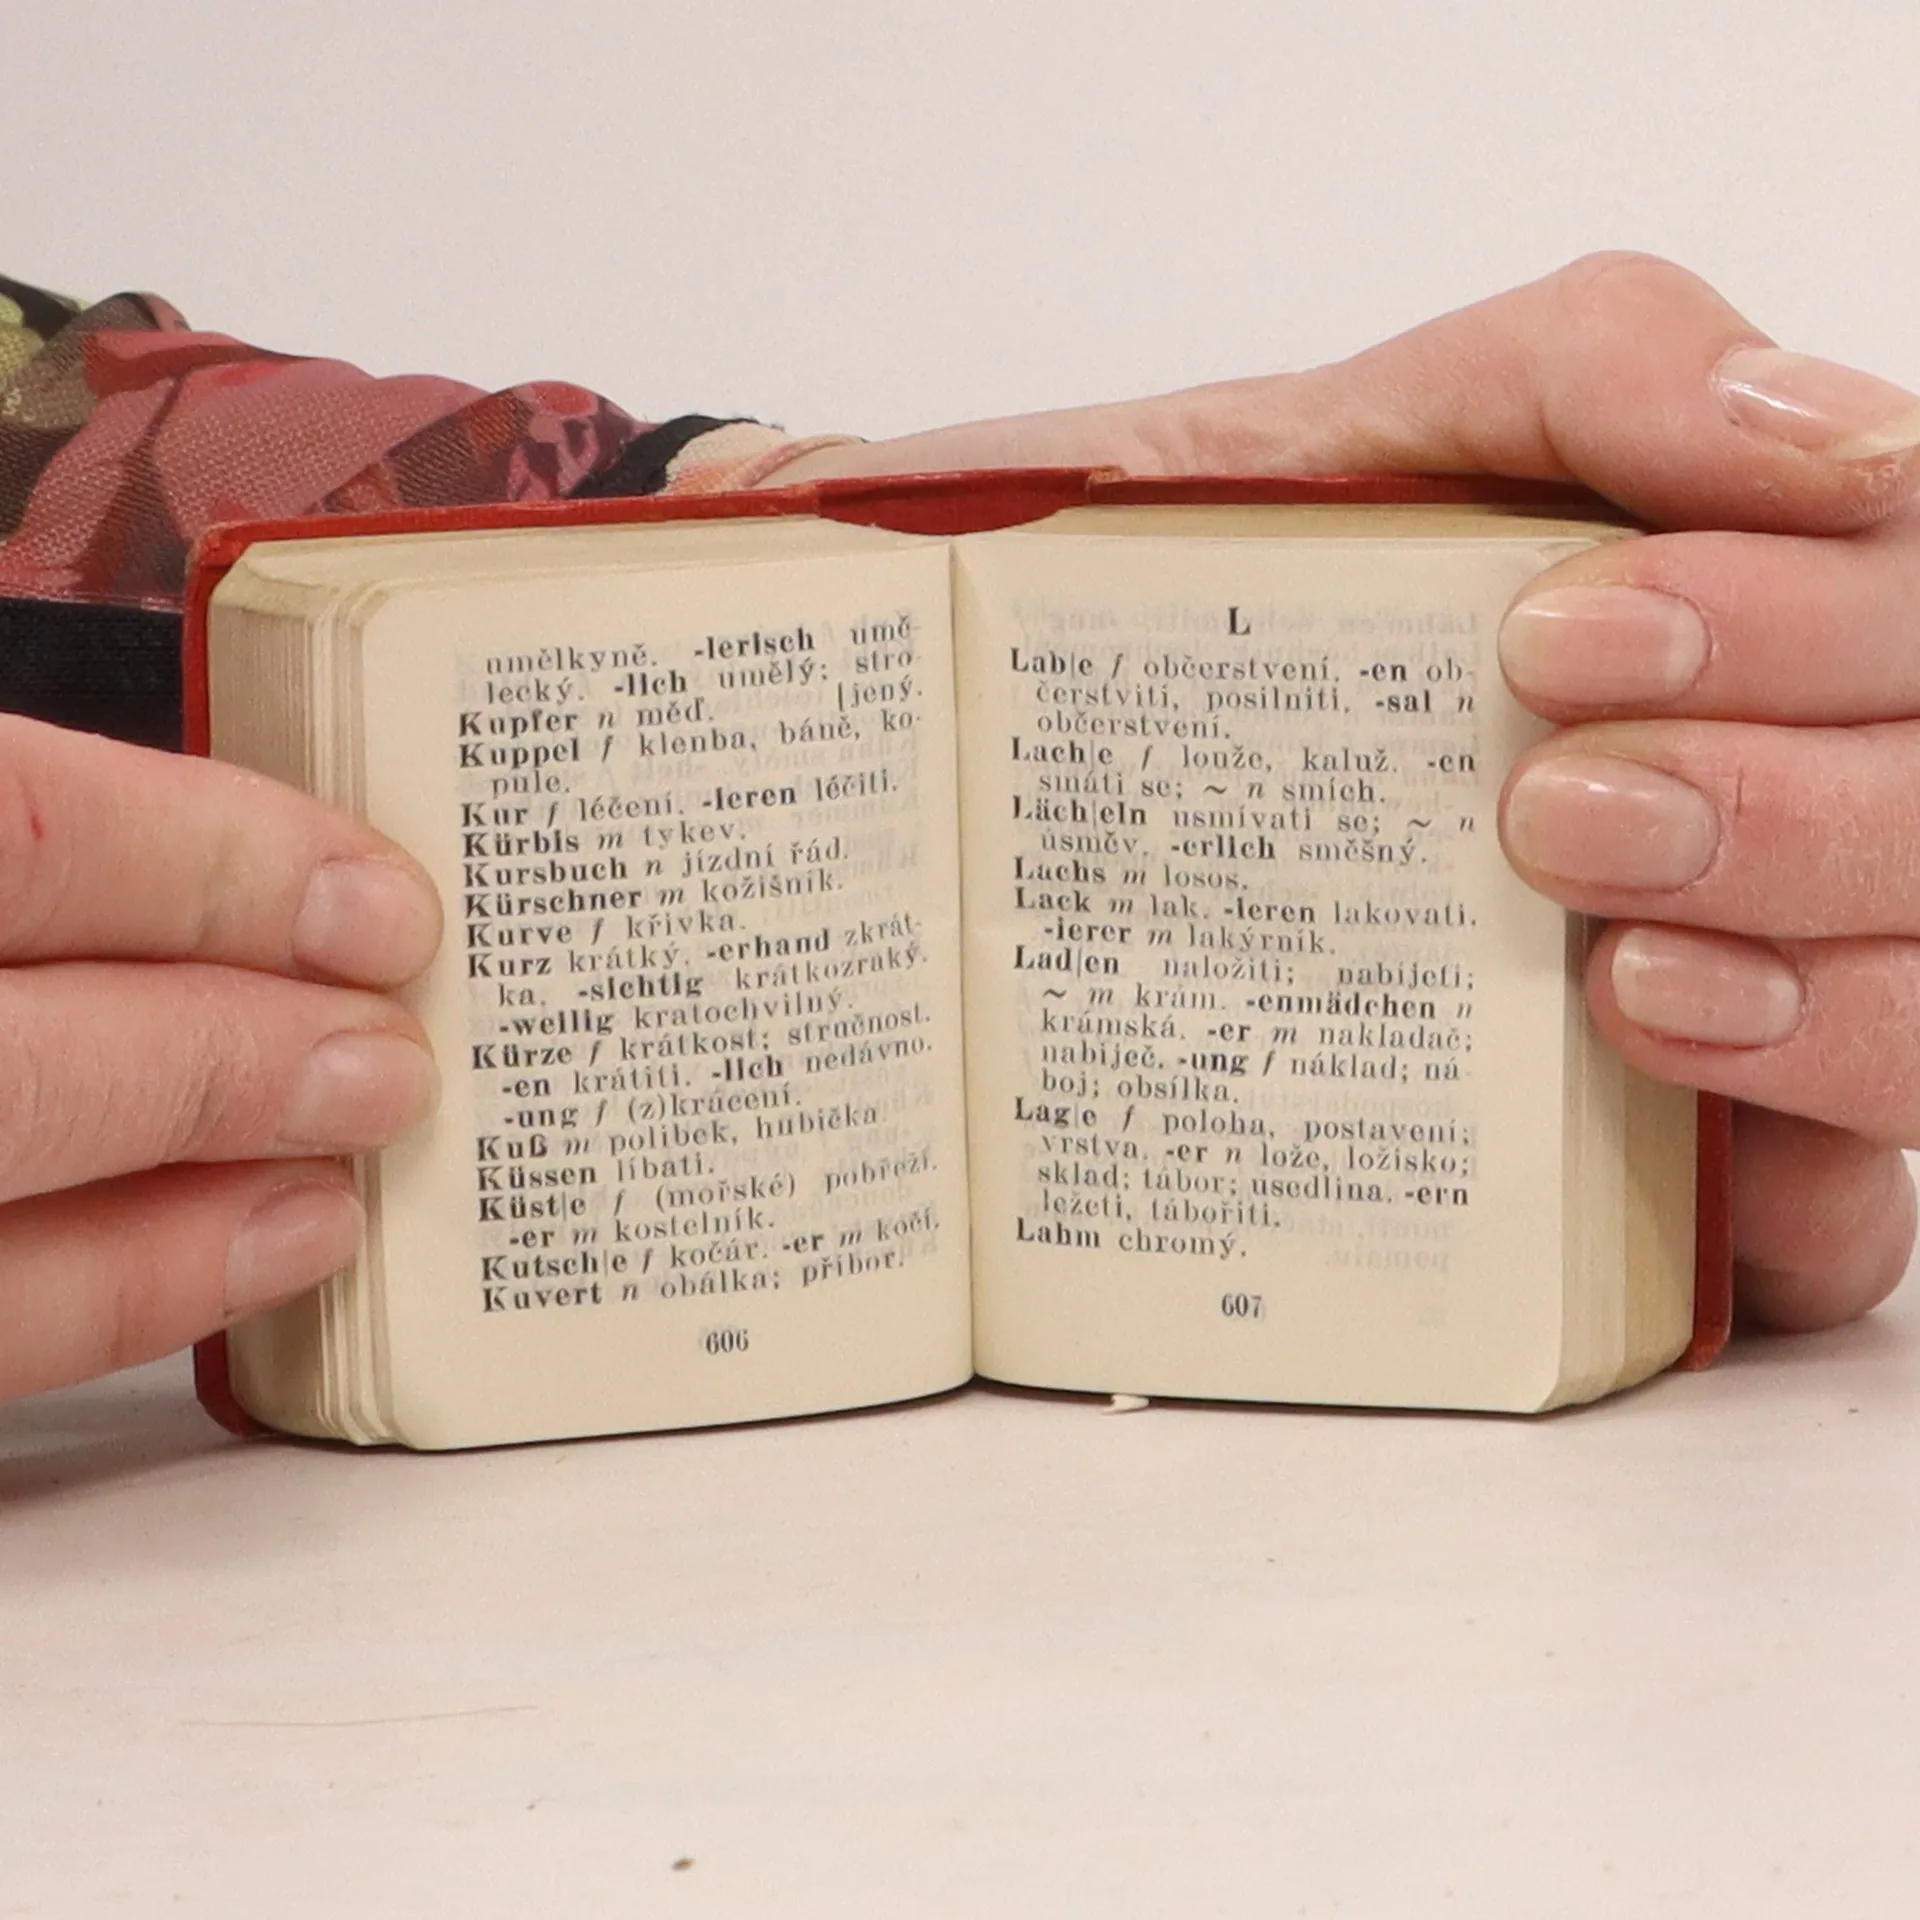 umělkyně. -lerisch umě-
lecký. -lich umělý; stro-
Kupfer n měď. [jený.
Kuppel f klenba, báně, ko-
pule.
Kur f léčení. -ieren léčiti.
Kürbis m tykev.
Kursbuch n jízdní řád.
Kürschner m kožišník.
Kurve f křivka.
Kurz krátký. -erhand zkrát-
ka. -sichtig krátkozraký.
-weilig kratochvilný.
Kürze f krátkost; stručnost.
-en krátiti. -lich nedávno.
-ung f (z)krácení.
Kuß m polibek, hubička.
Küssen líbati.
Küst|e f (mořské) pobřeží.
-er m kostelník.
Kutsch|e f kočár. -er m kočí.
Kuvert n obálka; příbor.
606
L
Lab|e f občerstvení. -en ob-
čerstviti, posilniti. -sal n
občerstvení.
Lach|e f louže, kaluž. -en
smáti se; ~ n smích.
Läch|eln usmívati se; ~ n
úsměv. -erlich směšný.
Lachs m losos.
Lack m lak. -ieren lakovati.
-ierer m lakýrník.
Lad|en naložiti; nabíjeti;
~ m krám. -enmädchen n
krámská. -er m nakladač;
nabíječ. -ung f náklad; ná-
boj; obsílka.
Lag|e f poloha, postavení;
vrstva. -er n lože, ložisko;
sklad; tábor; usedlina. -ern
ležeti, tábořiti.
Lahm chromý.
607